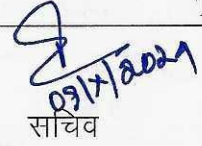 09/x/2024
सचिव